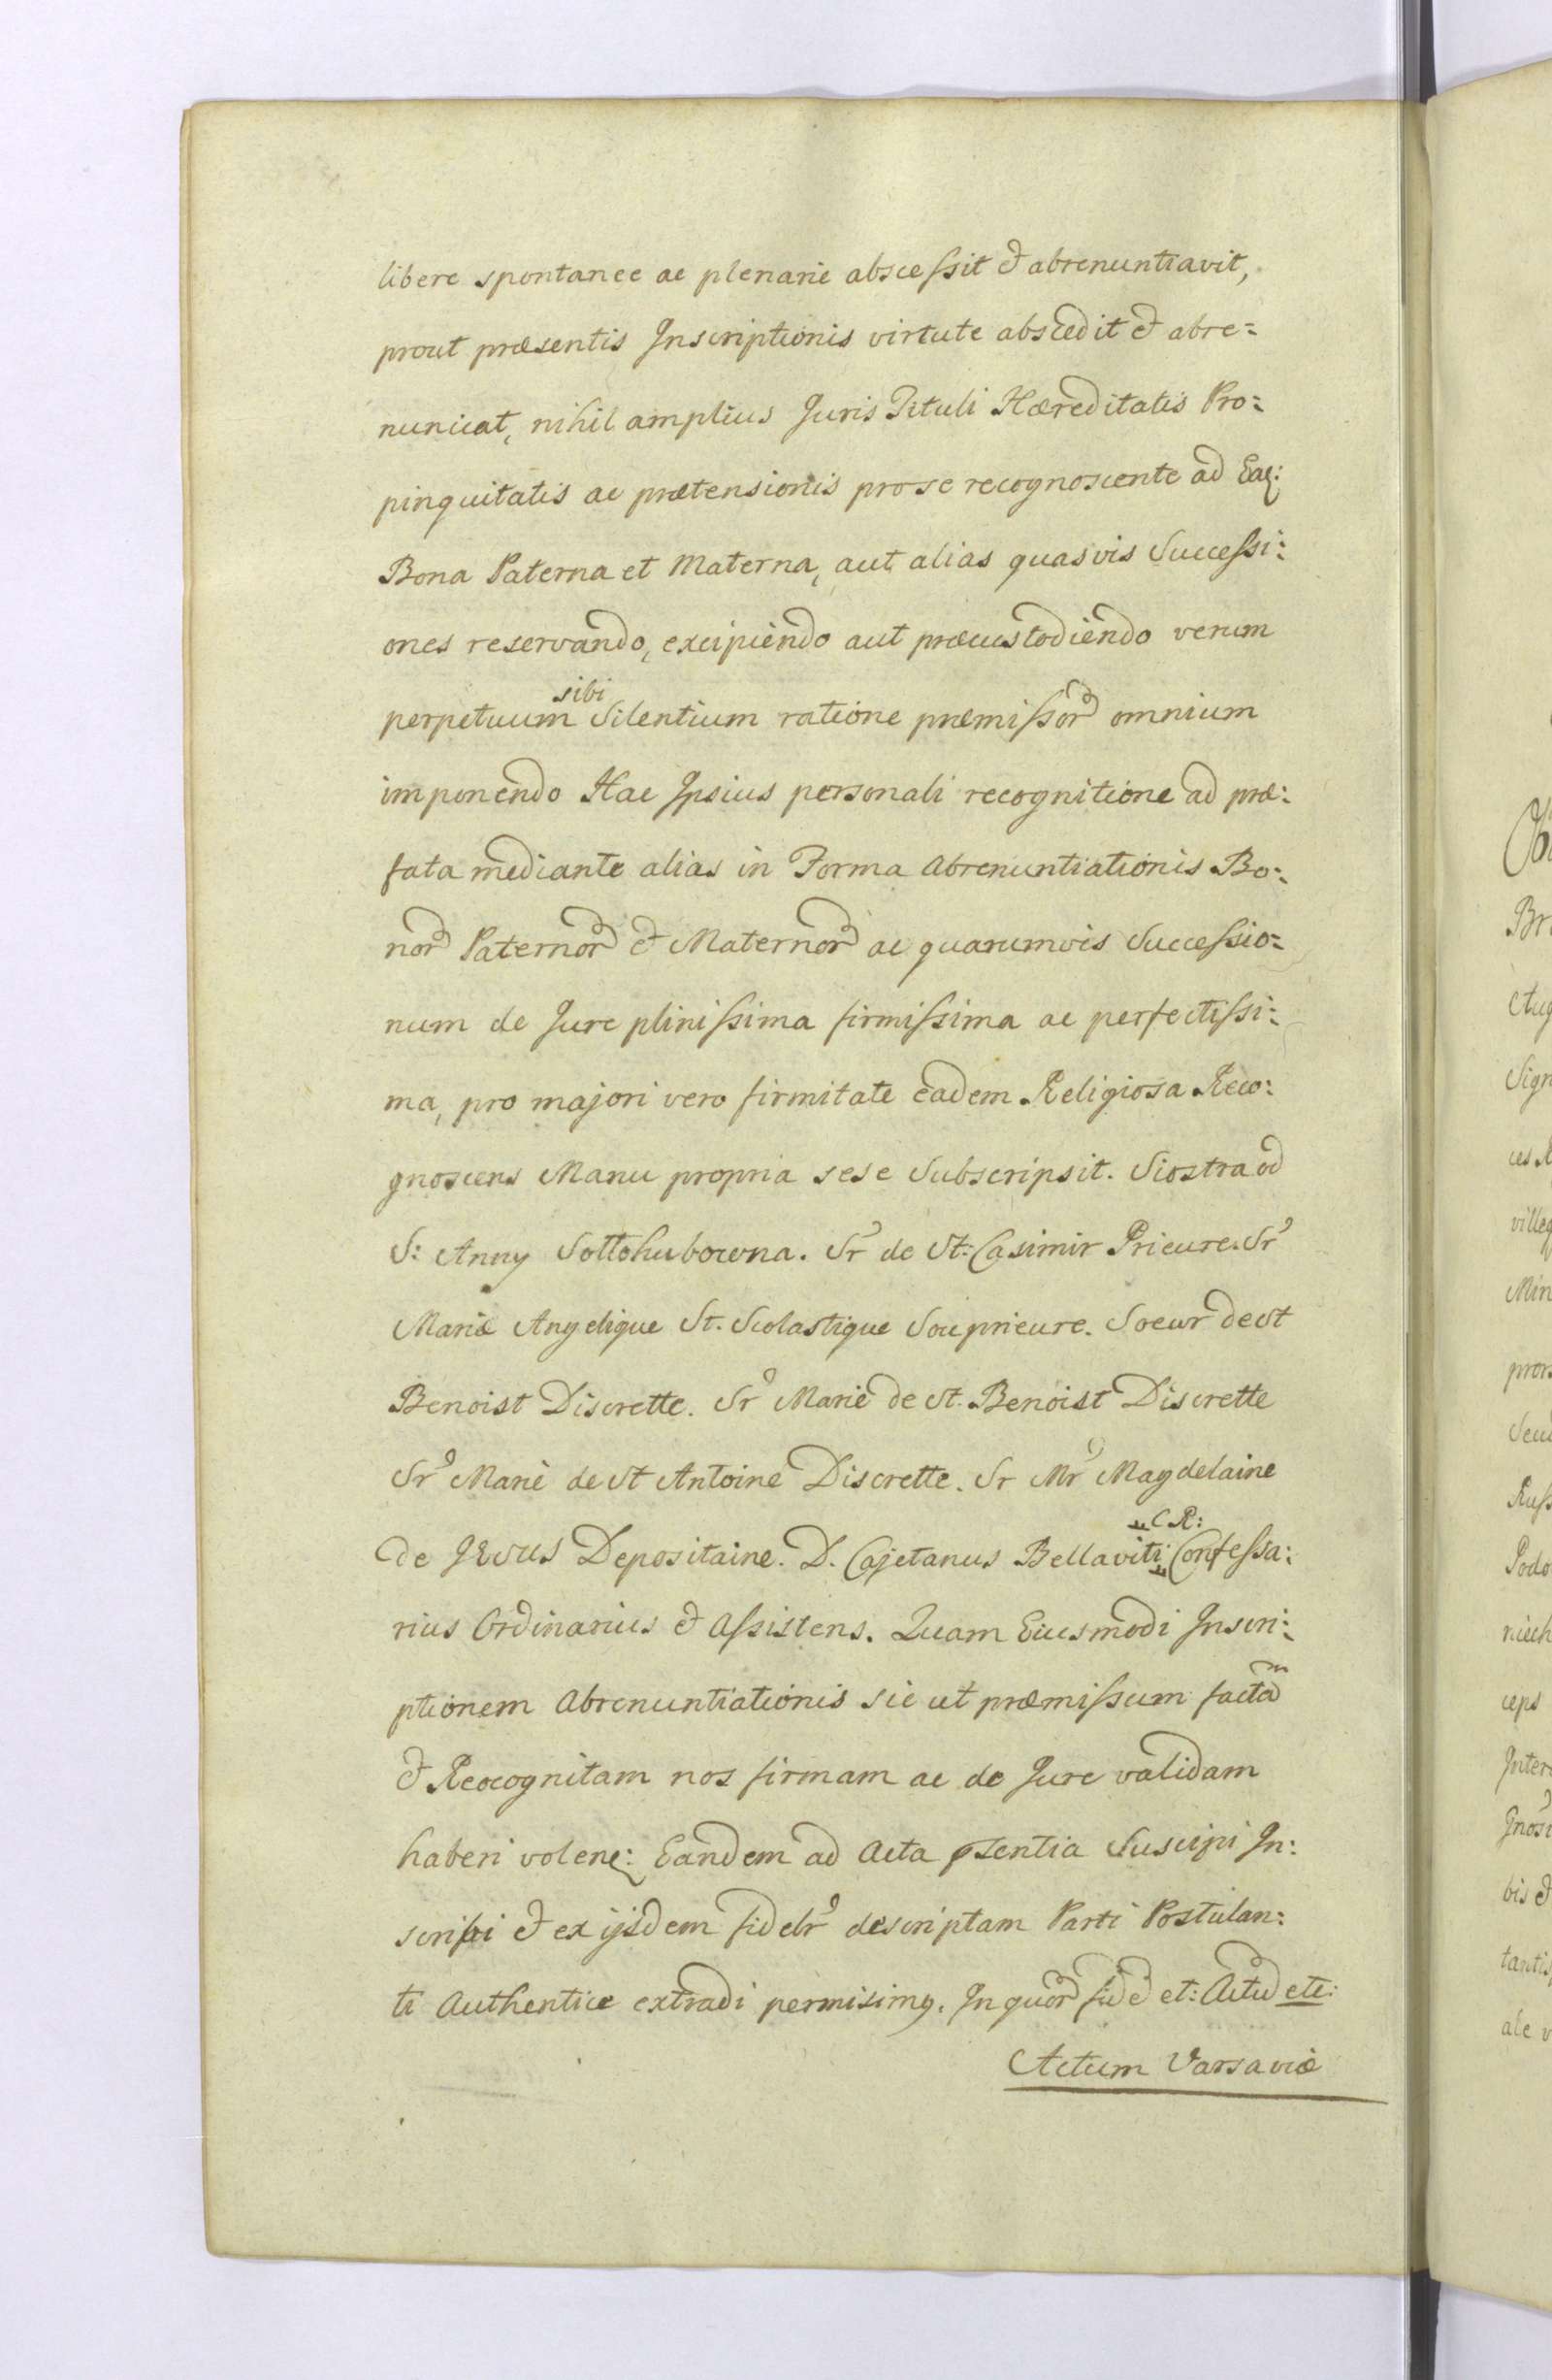 libere spontanee ac plenarie abscessit & abrenuntiavit,
prout præsentis Inscriptionis virtute abscedit & abre=
nunciat, nihil amplius Juris Tituli Hæreditatis Pro=
pinquitatis ac prætensionis pro se recognoscente ad Eaq:
Bona Paterna et Materna, aut alias quasvis Successi:
ones reservando, excipiendo aut præcustodiendo verum
sibi
perpetuum Silentium ratione præmissor omnium
imponendo Hac Ipsius personali recognitione ad præ:
fata mediante alias in Forma Abrenuntiationis Bo:
nor Paternor & Maternor ac quarumvis Successio=
num de Jure plinissima firmissima ac perfectissi:
ma, pro majori vero firmitate eadem Religiosa Reco:
gnoscens Manu propria sese Subscripsit. Siostra od
S: Anny Soltohubowna. Sr de St: Casimir Prieure. Sr
Marie Angelique St. Scolastique Souprieure. Soeur de St
Benoist Discrette. Sr Marie de St. Benoist Discrette
Sr Marie de St Antoine Discrette. Sr Mr Magdelaine
C.R:
de JESUS Depositaine. D. Cajetanus Bellaviti Confessa:
rius Ordinarius & Assistens. Quam Eiusmodi Inscri:
ptionem Abrenuntiationis sic ut præmissum factam
& Reocognitam nos firmam ac de Jure validam
haberi volens: Eandem ad Acta psentia Suscipi In:
scribi & ex ijsdem fidelr descriptam Parti Postulan:
ti Authentice extradi permisimus. In quor fid & et: Actu etc:
Actum Varsaviæ
Br
Sign
villeg
Min
Seu
Russ
Podo
niech
ceps
Inter
bis &
tantis
ale v